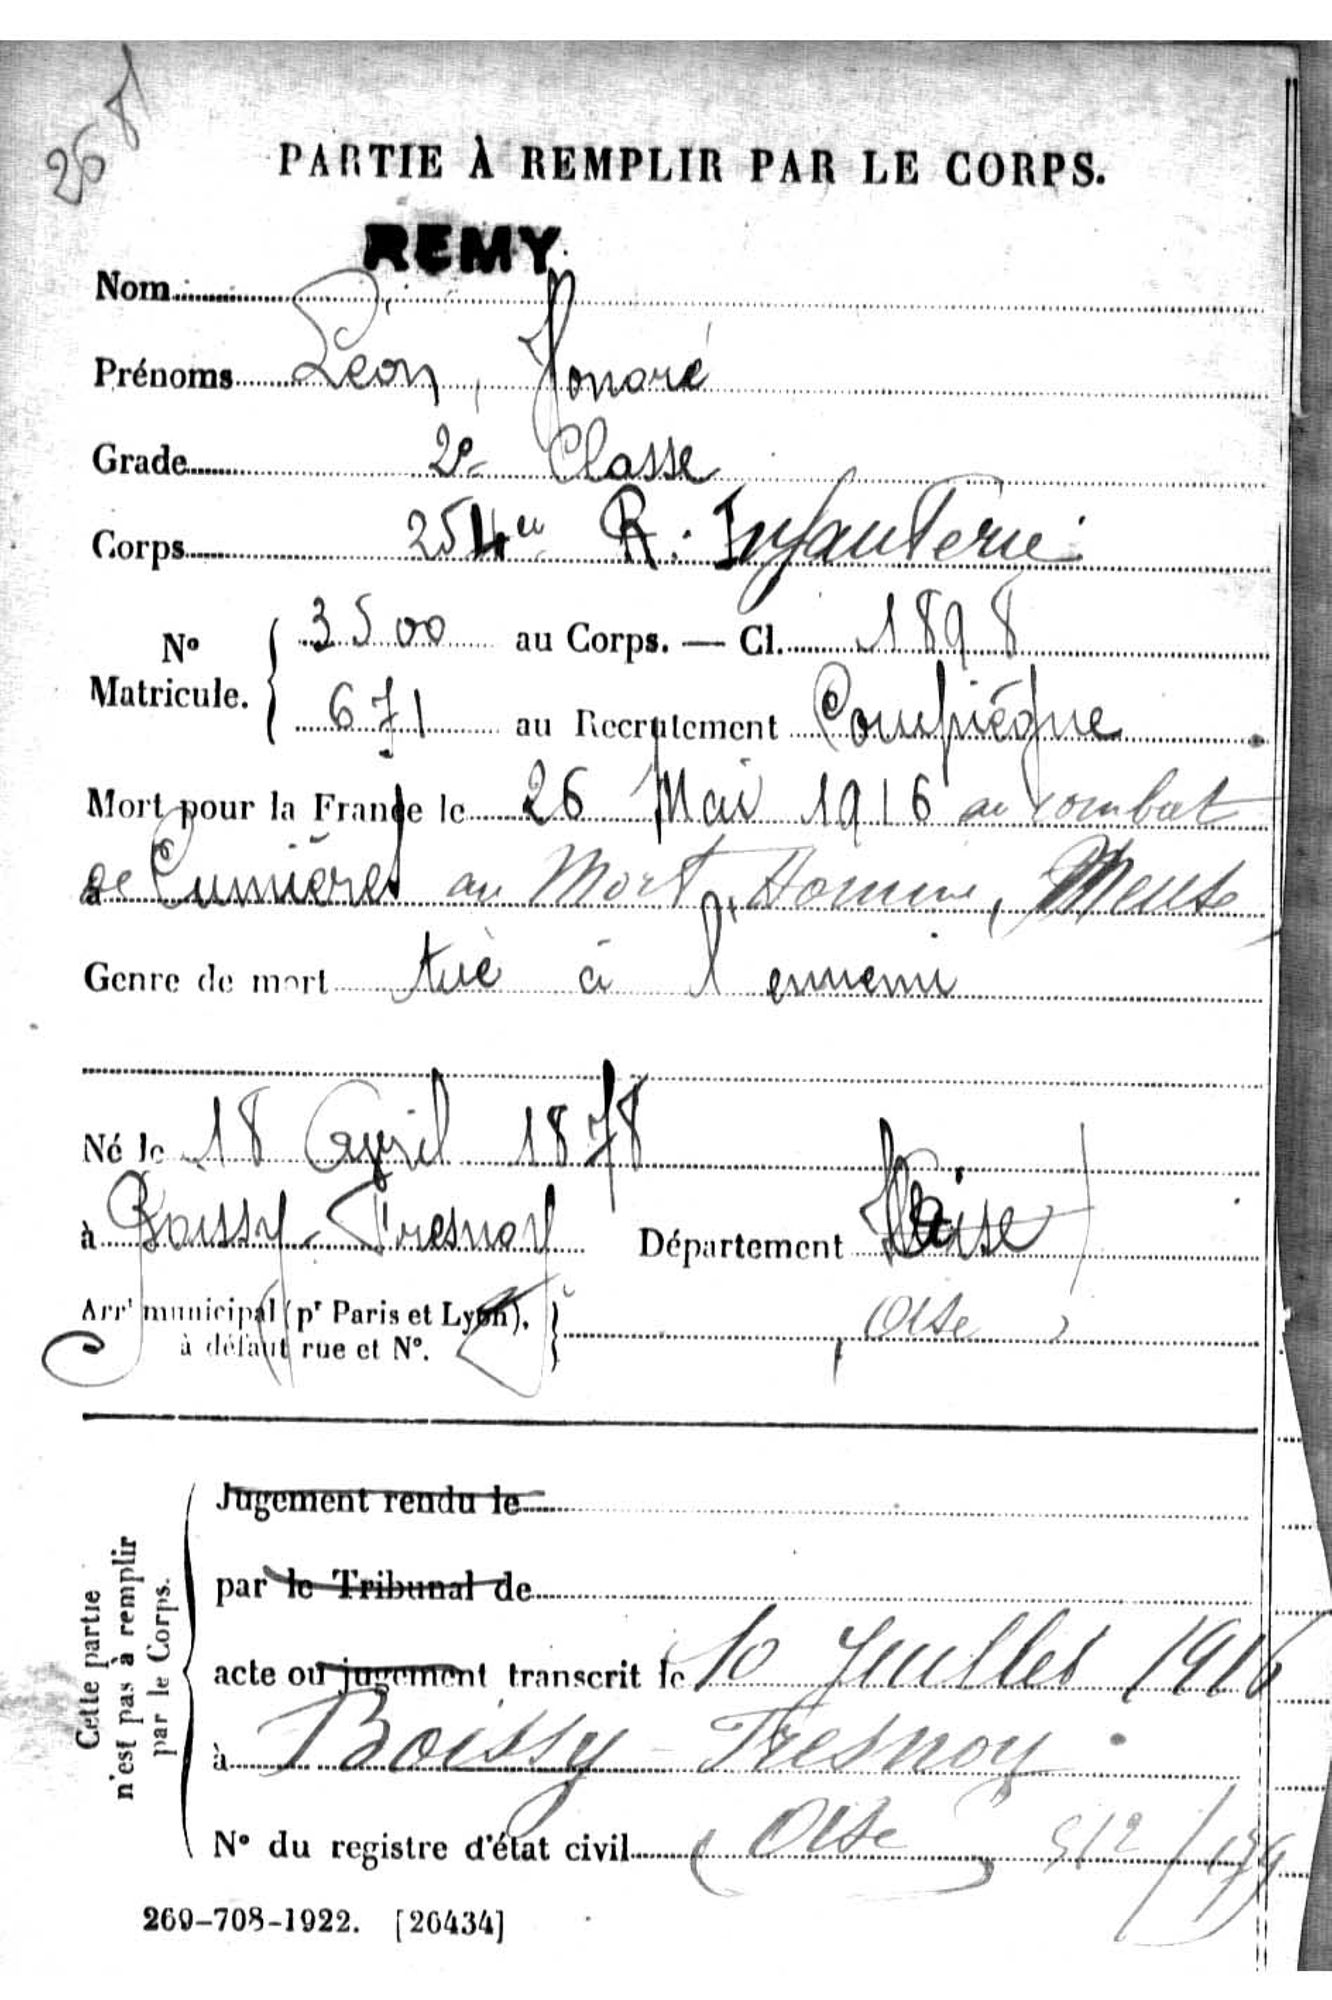 PARTIE À REMPLIR PAR LE CORPS.
REMY
Nom
Prénoms Léon, Honoré
Grade 2e Classe
Corps 254eu R. Infanterie
No Matricule. 3500 au Corps. — Cl. 1898
671 au Recrutement Compiégne
Mort pour la France le 26 Mai 1916 au combat
de Cumières au Mort Homme, Meuse
Genre de mort tué à l'ennemi
Né le 18 Avril 1878
à Boissy-Fresnoy Département Oise
Arrt municipal (pr Paris et Lyon),
à défaut rue et No.
Oise
Cette partie
n'est pas à remplir
par le Corps.
Jugement rendu le
par le Tribunal de
acte ou jugement transcrit le 10 Juillet 1916
à Boissy-Fresnoy
No du registre d'état civil (Oise) 512/179
269-708-1922. [26434]